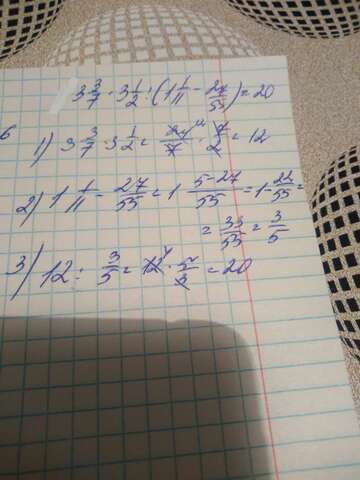 3 3/7 · 3 1/2 : (1 1/11 - 27/55) = 20
6
1) 3 3/7 · 3 1/2 = 24/7 · 7/2 = 12
2) 1 1/11 - 27/55 = 1 5-27/55 = 1 - 22/55 =
= 33/55 = 3/5
3) 12 : 3/5 = 12 · 5/3 = 20